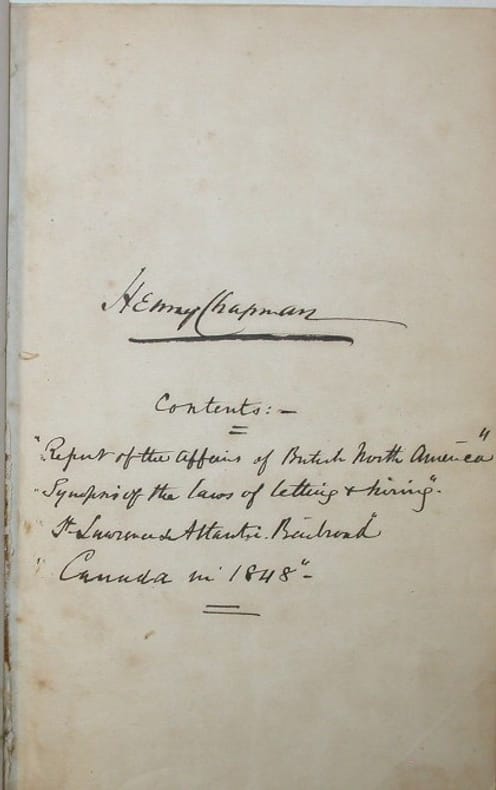 Henry Chapman
Contents:-
"Report of the affairs of British North America"
"Synopsis of the laws of letting & hiring".
St. Lawrence & Atlantic Railroad"
"Canada in 1848"-